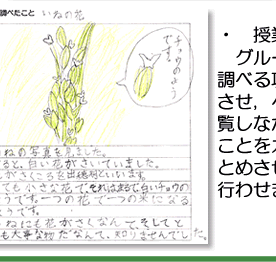 調べたこと いねの花
チョウのよう
ねの写真を見ました。
ると、白い花がさいていました。
がさくころを出穂期といいます。
ても小さな花で、それはまるで白いチョウの
うです。一つの花で一つの米になる
うです。
ねにも花がさくなんて、そしてと
も大事な物だなんて、知りませんでした。
・ 授業
グルー
調べる項
させ，
覧しなか
ことを
とめさせ
行わせま